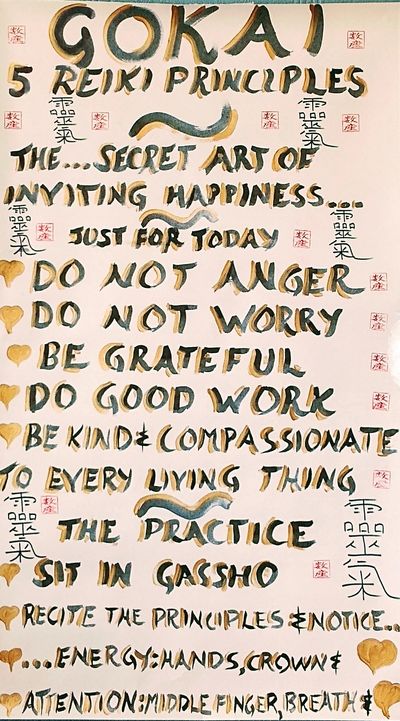 GOKAI
5 REIKI PRINCIPLES
靈氣
靈氣
THE...SECRET ART OF
INVITING HAPPINESS....
靈氣
靈氣
JUST FOR TODAY
DO NOT ANGER
DO NOT WORRY
BE GRATEFUL
DO GOOD WORK
BE KIND & COMPASSIONATE
TO EVERY LIVING THING
靈氣
靈氣
THE PRACTICE
SIT IN GASSHO
RECITE THE PRINCIPLES & NOTICE..
...ENERGY:HANDS,CROWN &
ATTENTION:MIDDLE FINGER,BREATH &